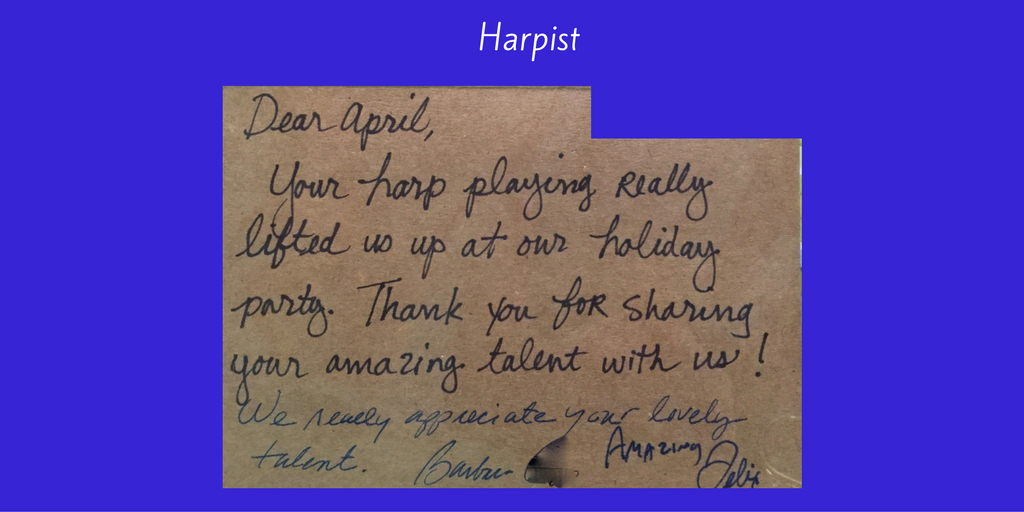 Harpist
Dear April,
Your harp playing really
lifted us up at our holiday
party. Thank you for sharing
your amazing talent with us!
We really appreciate your lovely
talent.
Amazing Felix